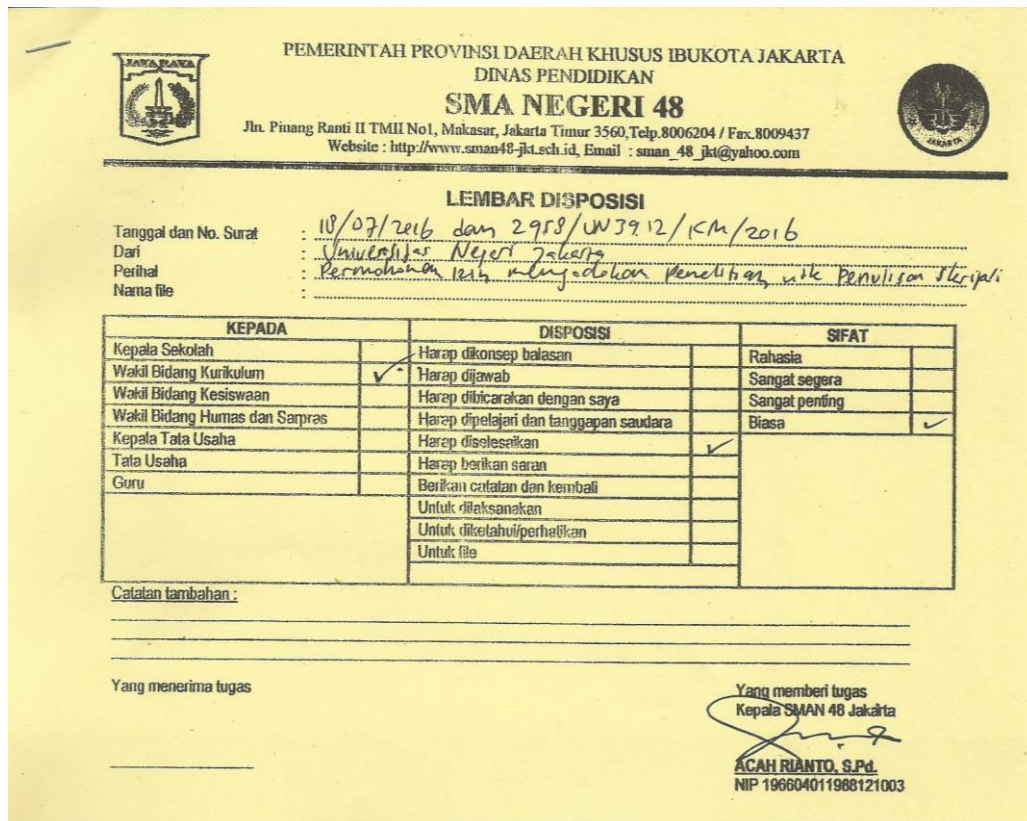 JAYA RAYA
PEMERINTAH PROVINSI DAERAH KHUSUS IBUKOTA JAKARTA
DINAS PENDIDIKAN
SMA NEGERI 48
Jln. Pinang Ranti II TMII No1, Makasar, Jakarta Timur 3560,Telp.8006204 / Fax.8009437
Website : http://www.sman48-jkt.sch.id, Email : sman_48_jkt@yahoo.com
JAKARTA
LEMBAR DISPOSISI
Tanggal dan No. Surat : 18/07/2016 dan 2958/UN39.12/KM/2016
Dari : Universitas Negeri Jakarta
Perihal : Permohonan izin mengadakan Penelitian utk Penulisan Skripsi
Nama file :
KEPADA DISPOSISI SIFAT
Kepala Sekolah Harap dikonsep balasan Rahasia
Wakil Bidang Kurikulum ✓ Harap dijawab Sangat segera
Wakil Bidang Kesiswaan Harap dibicarakan dengan saya Sangat penting
Wakil Bidang Humas dan Sarpras Harap dipelajari dan tanggapan saudara Biasa ✓
Kepala Tata Usaha Harap diselesaikan ✓
Tata Usaha Harap berikan saran
Guru Berikan catatan dan kembali
Untuk dilaksanakan
Untuk diketahui/perhatikan
Untuk file
Catatan tambahan :
Yang menerima tugas Yang memberi tugas
Kepala SMAN 48 Jakarta
ACAH RIANTO, S.Pd.
NIP 196604011988121003